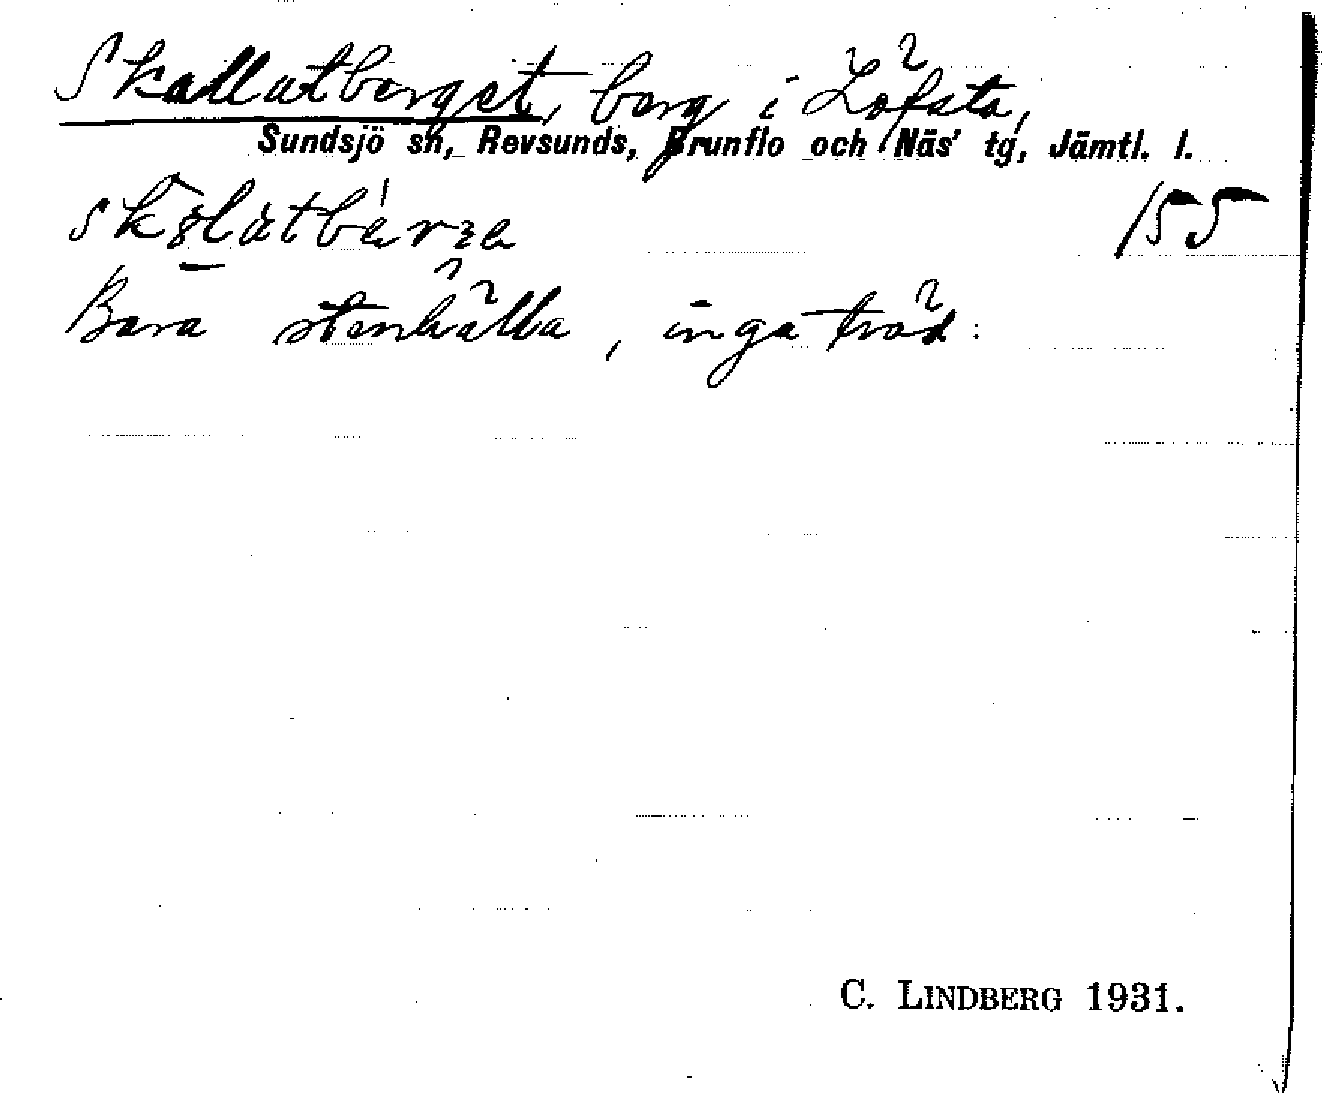 Skallutberget, berg i Löfsta,
Sundsjö sn, Revsunds, Brunflo och Näs' tg, Jämtl. l.
155
Bara stenhälla, inga träd.
C. LINDBERG 1931.